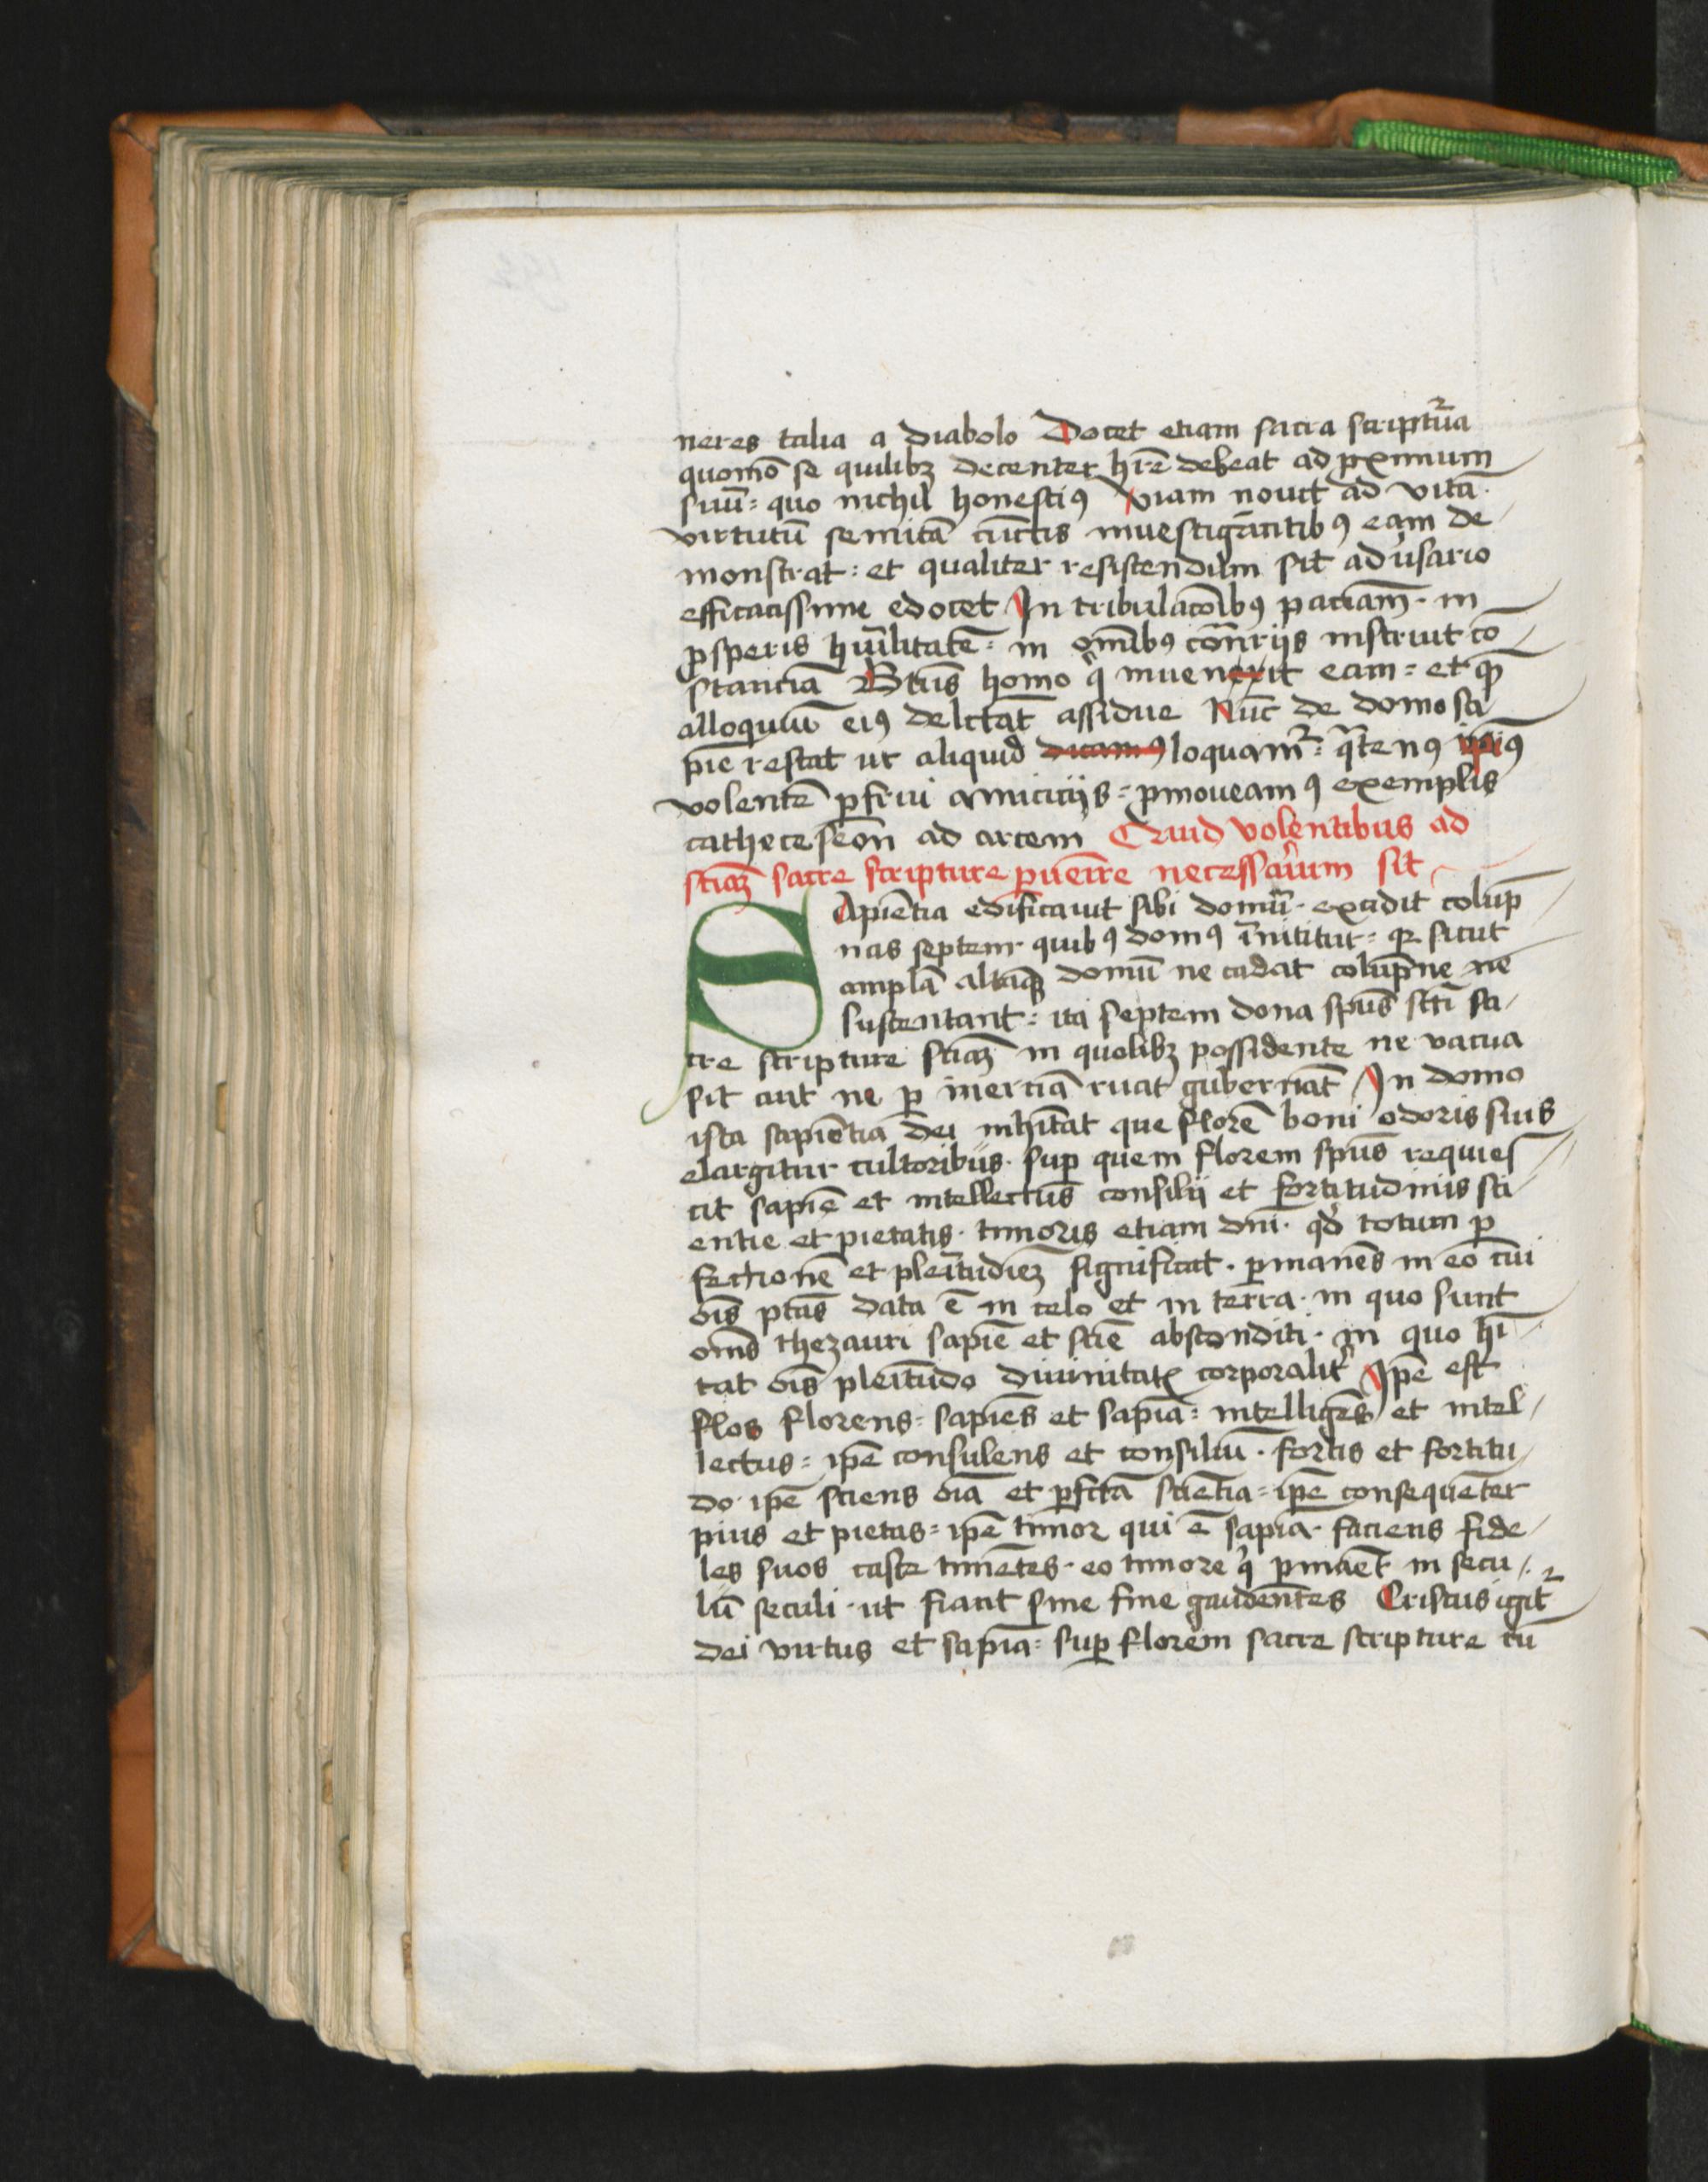 neres talia a diabolo Docet etiam sacra scriptu̅ra
quomo̅ se quilibꝫ decenter hr̅e debeat ad ꝓximum
suu̅ = quo nichil honestiꝯ viam nouit ad vita̅
virtutu̅ semita̅ cu̅ctis inuestiga̅tibꝯ eam de
monstrat : et qualiter resistendum sit adu̓sario
efficacissime edocet In tribulac̅o̅ibꝯ pacia̅m · in
ꝓsperis hu̅ilitate̅ = in om̅ibꝯ co̅nr̅iis instruit co̅
stancia̅ Bt̅us homo q̓ inuenerit eam = et qꝫ
alloquiu̅ eiꝯ delc̅tat assidue Nu̅c de domo sa
pie̅ restat ut aliquid dicamꝯ loquam᷑ = qͣtenꝯ ip̅iꝯ
volente̅ ꝑfrui amiciciis = ꝓmoueamꝯ exemplis
catheceseo̅n ad arcem Quid volentibus ad
sci̅aꝫ sacre scripture ꝑuei̅re necessari̓um sit
SApie̅tia edificauit sibi domu̅ · excidit colup̅
nas septem · quibꝯ domꝯ i̅nititur = qꝛ sicut
ampla̅ alta̅qꝫ domu̅ ne cadat colup̅ne ne
sustentant = ita septem dona sp̅us sc̅ti sa
cre scripture sci̅aꝫ in quolibꝫ possidente ne vacua
sit aut ne ꝑ inercia̅ ruat guberna̅t In domo
ista sapie̅tia dei inhi̅tat que flore̅ boni odoris suis
elargitur cultoribus · suꝑ quem florem sp̅us requies
cit sapie̅ et intellectus consilii et fortitudinis sci
entie et pietatis · timoris etiam dn̅i · qd̓ totum ꝑ
fectione̅ et plei̅tudi̅eꝫ significat · ꝑmane̅s in eo cui
oi̅s pt̅as data e̅ in celo et in terra · in quo sunt
om̅s thezauri sapie̅ et scie̅ absconditi · in quo hi̅
tat oi̅s plei̅tudo diuinitatꝭ corporalit̓ Ip̅e est
flos florens = sapie̅s et sapi̅a = intellige̅s et intel
lectus = ip̅e consulens et consiliu̅ · fortis et fortitu
do · ip̅e sciens oi̅a et ꝑfc̅ta scie̅tia = ip̅e conseque̅ter
pius et pietas = ip̅e timor qui e̅ sapi̅a · faciens fide
les suos caste time̅tes · eo timore q̓ ꝑmae̅t in secu
lu̅ seculi · ut fiant sine fine gaude̅ntes Cristus igit᷑
dei virtus et sapi̅a = suꝑ florem sacre scripture cu̅